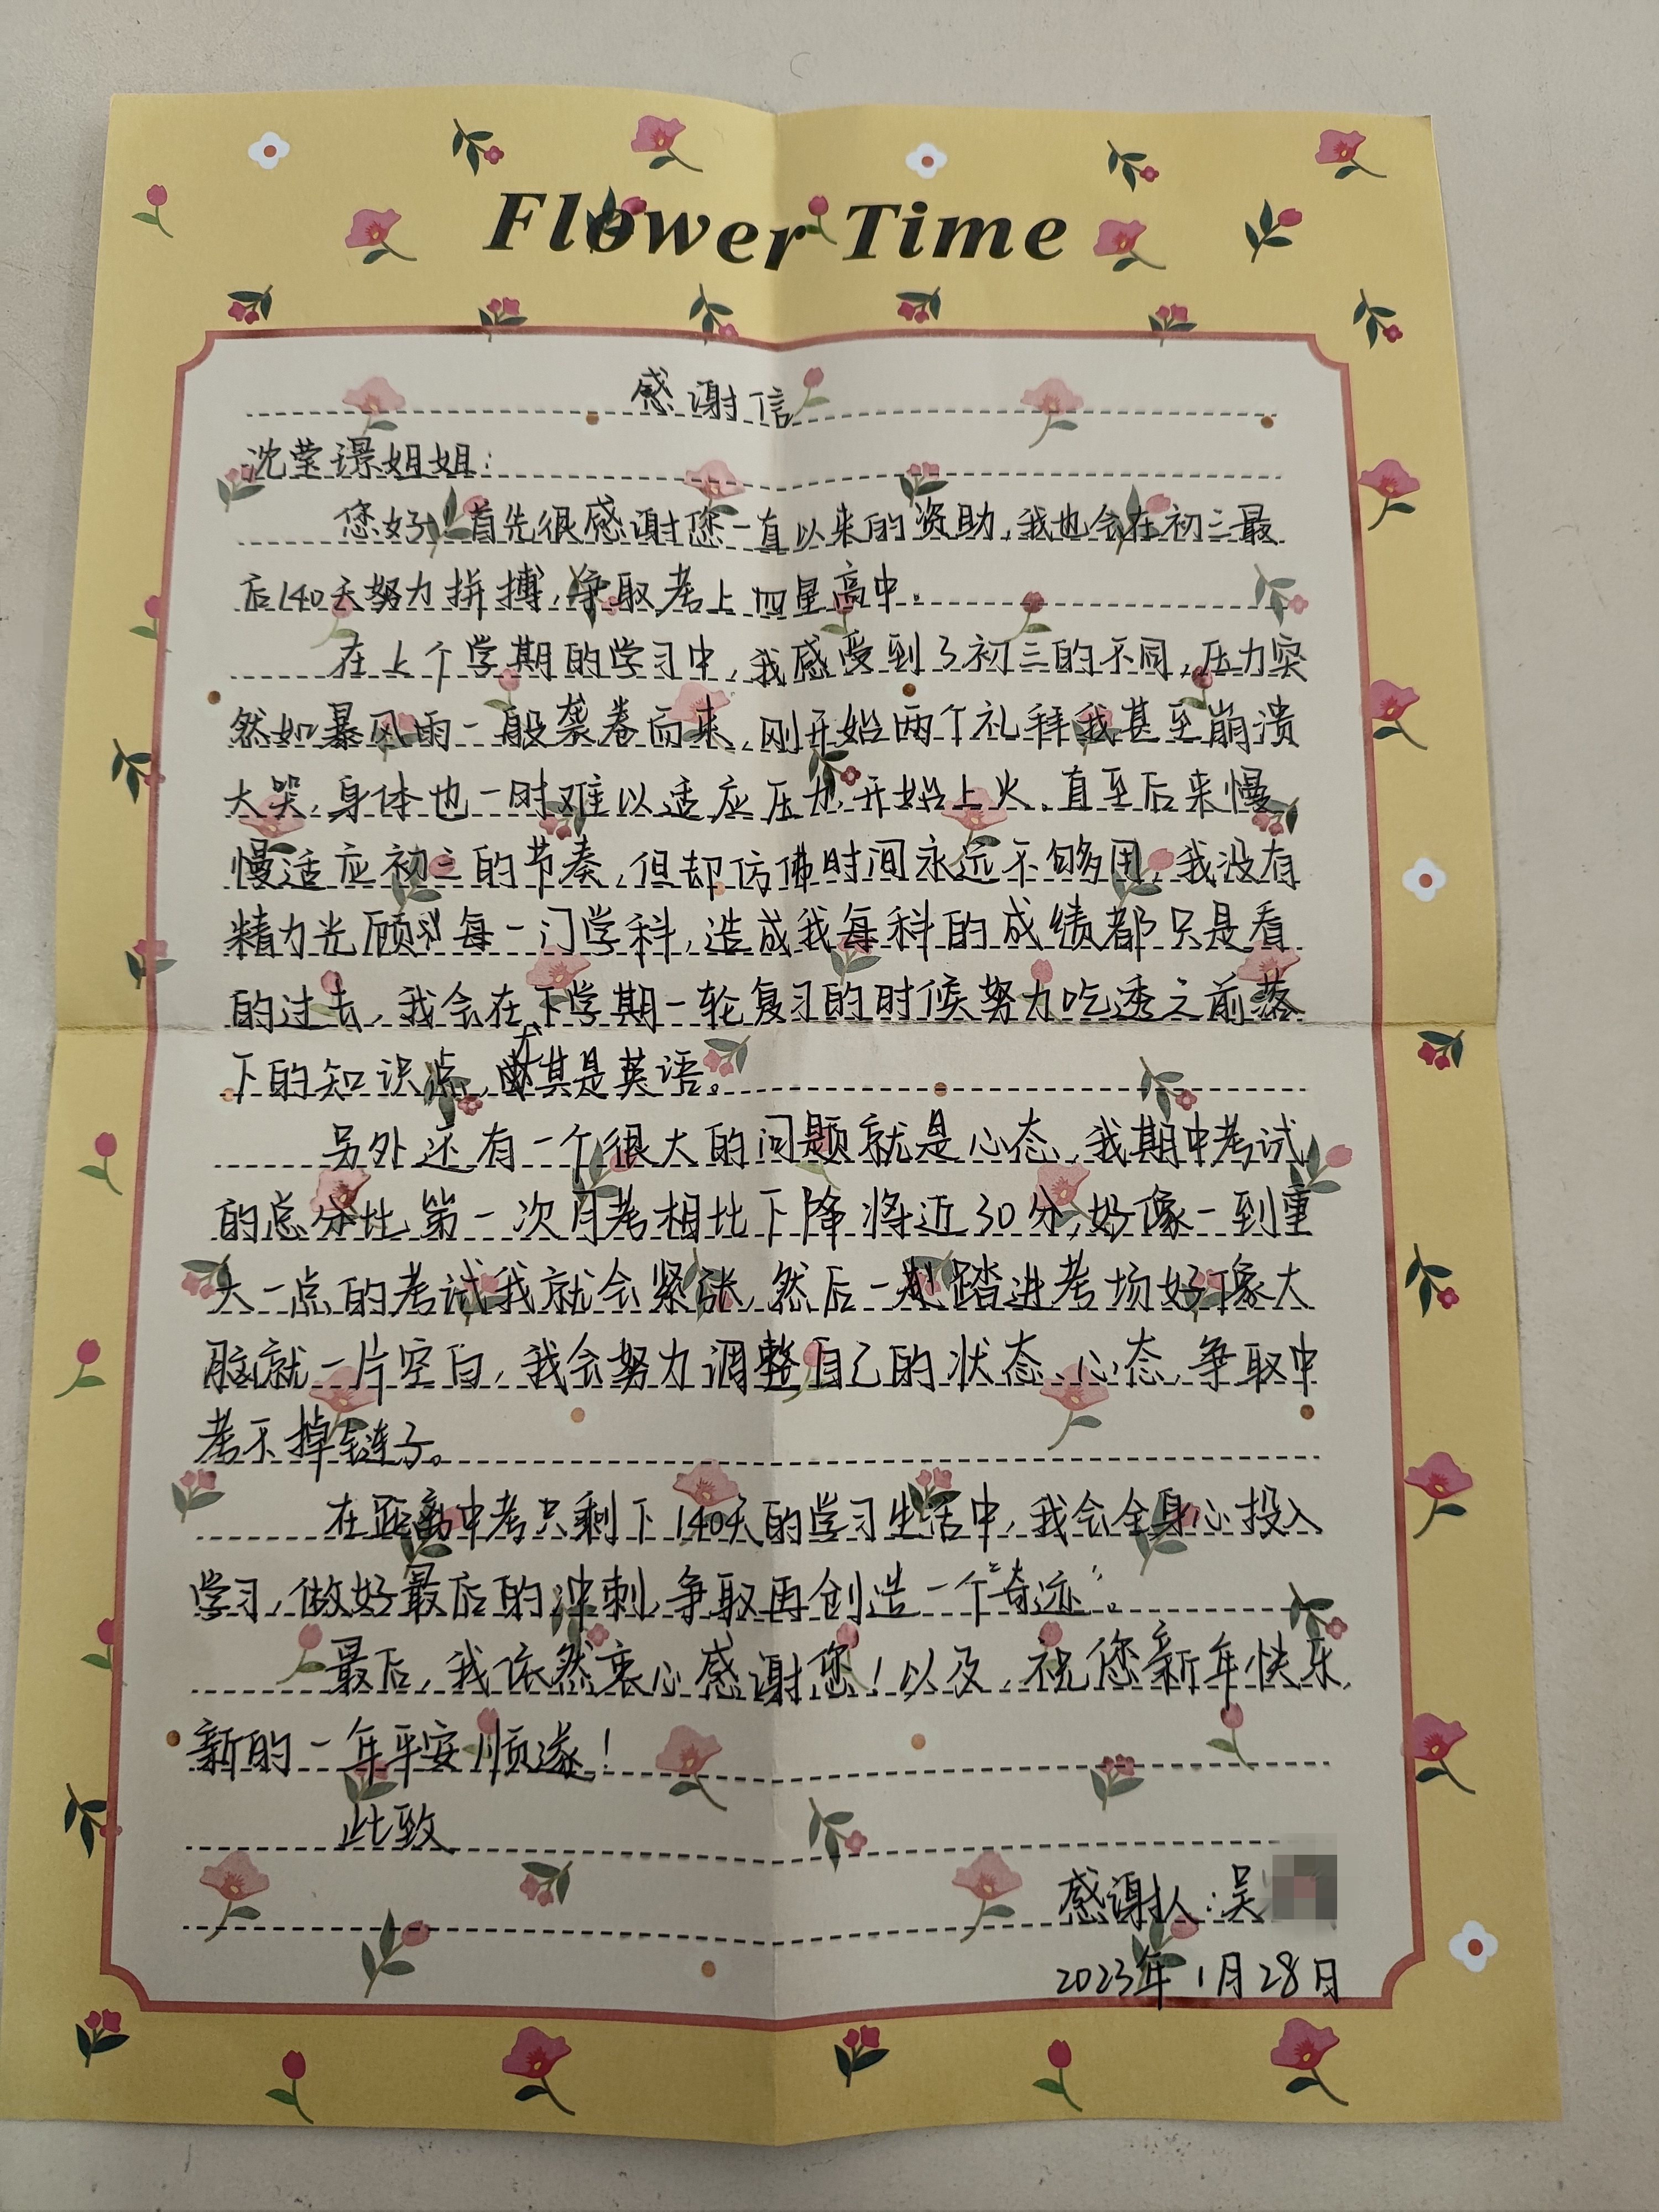 Flower Time
感谢信
沈莹璟姐姐：
您好！首先很感谢您一直以来的资助，我也会在初三最
后140天努力拼搏，争取考上四星高中。
在上个学期的学习中，我感受到了初三的不同，压力突
然如暴风雨一般袭卷而来，刚开始两个礼拜我甚至崩溃
大哭，身体也一时难以适应压力，开始上火。直至后来慢
慢适应初三的节奏，但却仿佛时间永远不够用，我没有
精力光顾每一门学科，造成我每科的成绩都只是看
的过去，我会在下学期一轮复习的时候努力吃透之前落
下的知识点，尤其是英语。
另外还有一个很大的问题就是心态，我期中考试
的总分比第一次月考相比下降将近30分，好像一到重
大一点的考试我就会紧张，然后一踏进考场好像大
脑就一片空白，我会努力调整自己的状态、心态，争取中
考不掉链子。
在距离中考只剩下140天的学习生活中，我会全身心投入
学习，做好最后的冲刺，争取再创造一个“奇迹”。
最后，我依然衷心感谢您！以及，祝您新年快乐，
新的一年平安顺遂！
此致
感谢人：吴
2023年1月28日